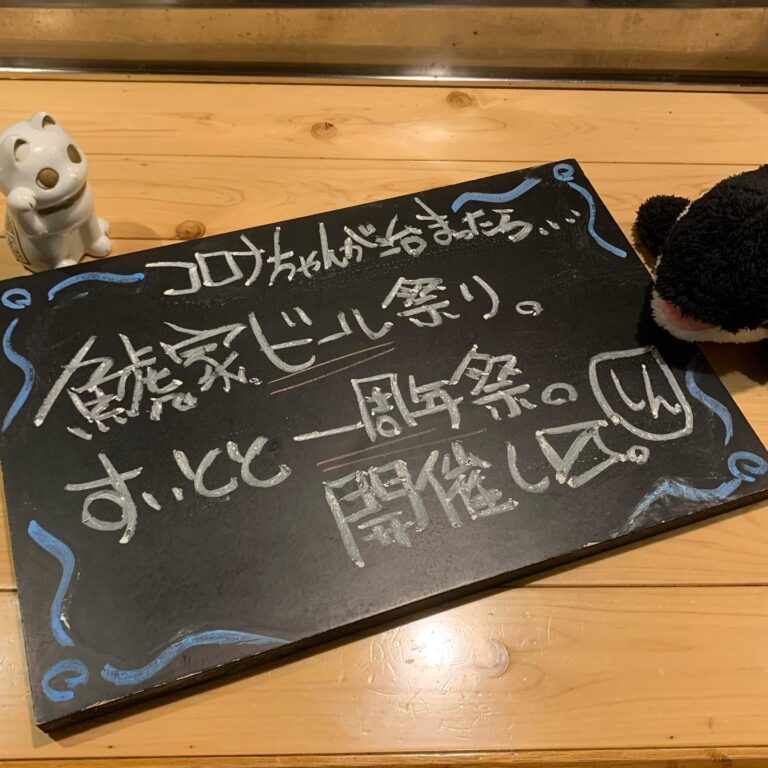 コロナちゃんが治まったら...
鯱家ビール祭り。
すいとと一周年祭。
開催し〼。
りん